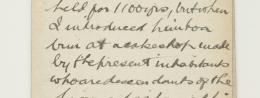 held for 1100 yrs, but when
I introduced him to a
brin at a cake shop made
by the present inhabitants
who are descendants of the